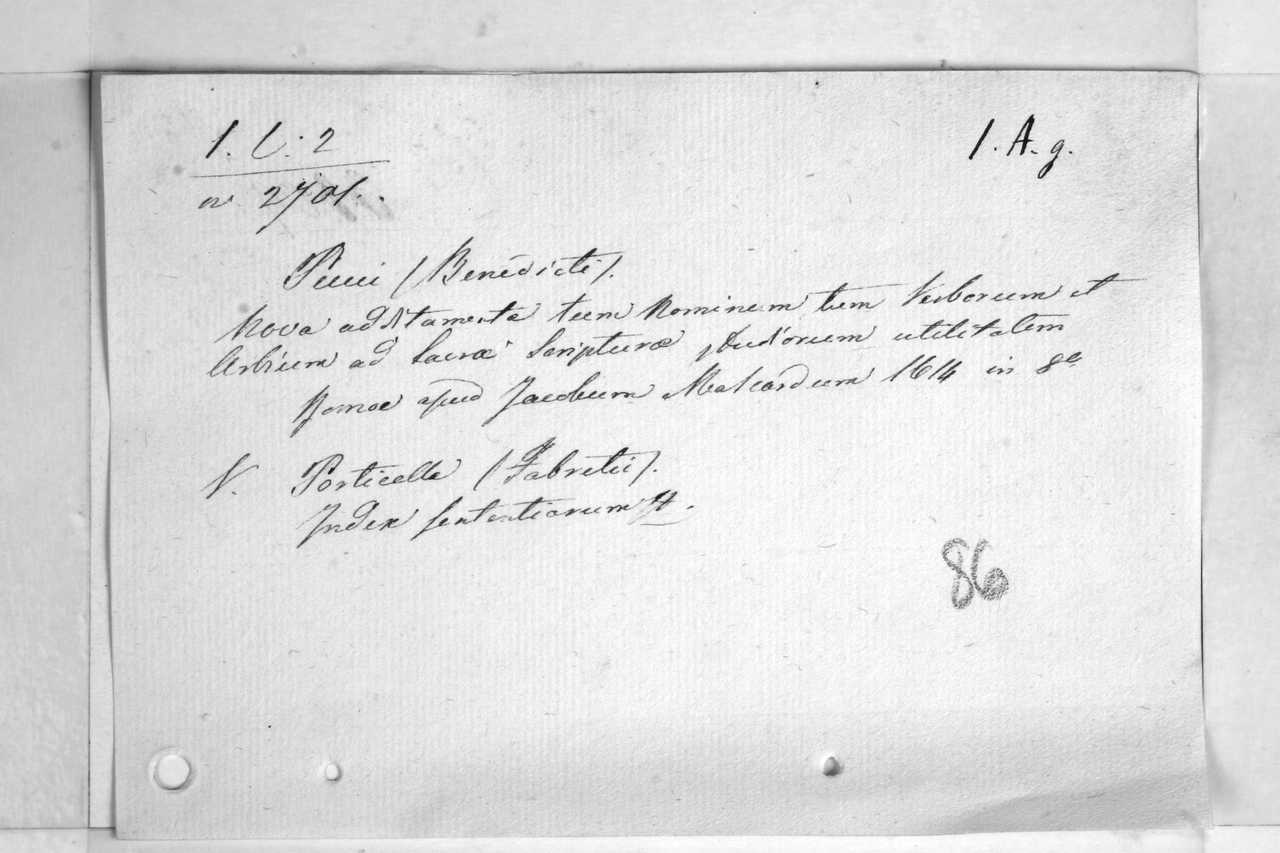 1. C. 2
1. A. g.
nr 2701.
Pucci (Benedicti).
Nova additamenta tum Nominum tum Verborum et
Urbium ad Sacrae Scripturae studiorum utilitatem
Romae apud Jacobum Mascardum 1614 in 8º
V. Porticella (Fabretii).
Index sententiarum
86